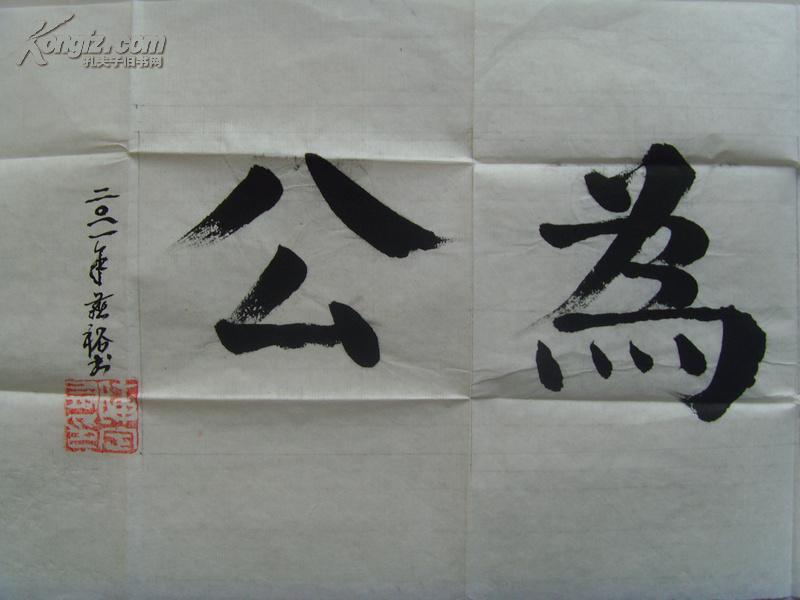 為公
二〇一一年蔡裕书
Kongfz.com
孔夫子旧书网